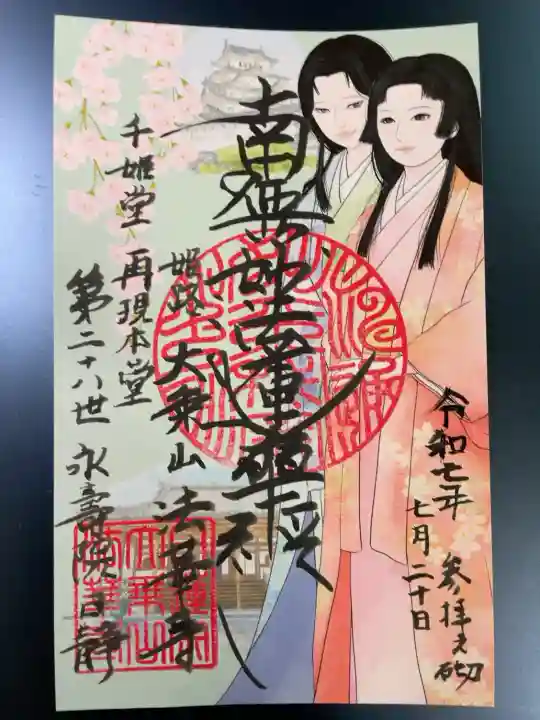 令和七年
七月二十日
参拝之砌
南無妙法蓮華経
姫路 大乗山 法華寺
千姫堂 再現本堂
第二十八世 永壽院日静